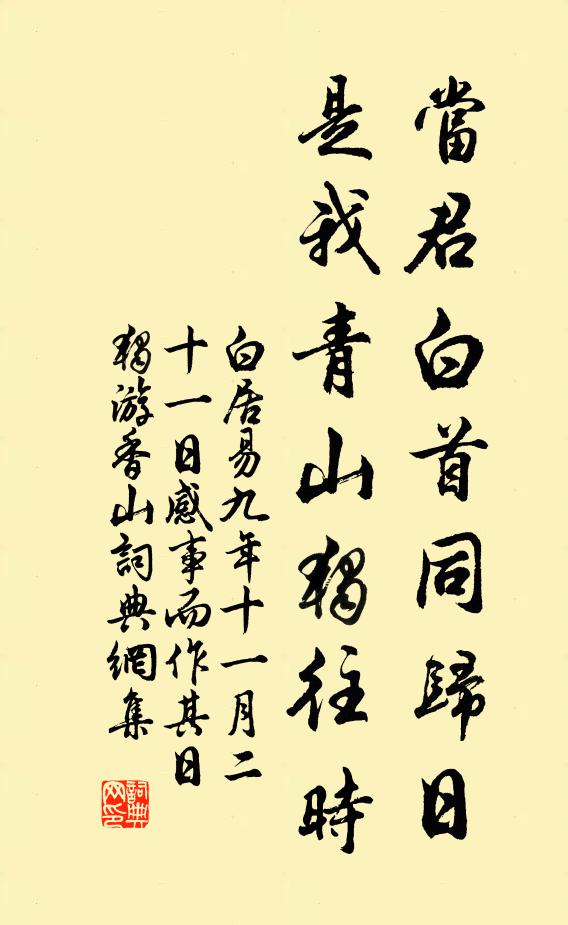 當君白首同歸日
是我青山獨往時
白居易九年十一月二
十一日感事而作其日
獨游香山詞典網集
詞典
网印